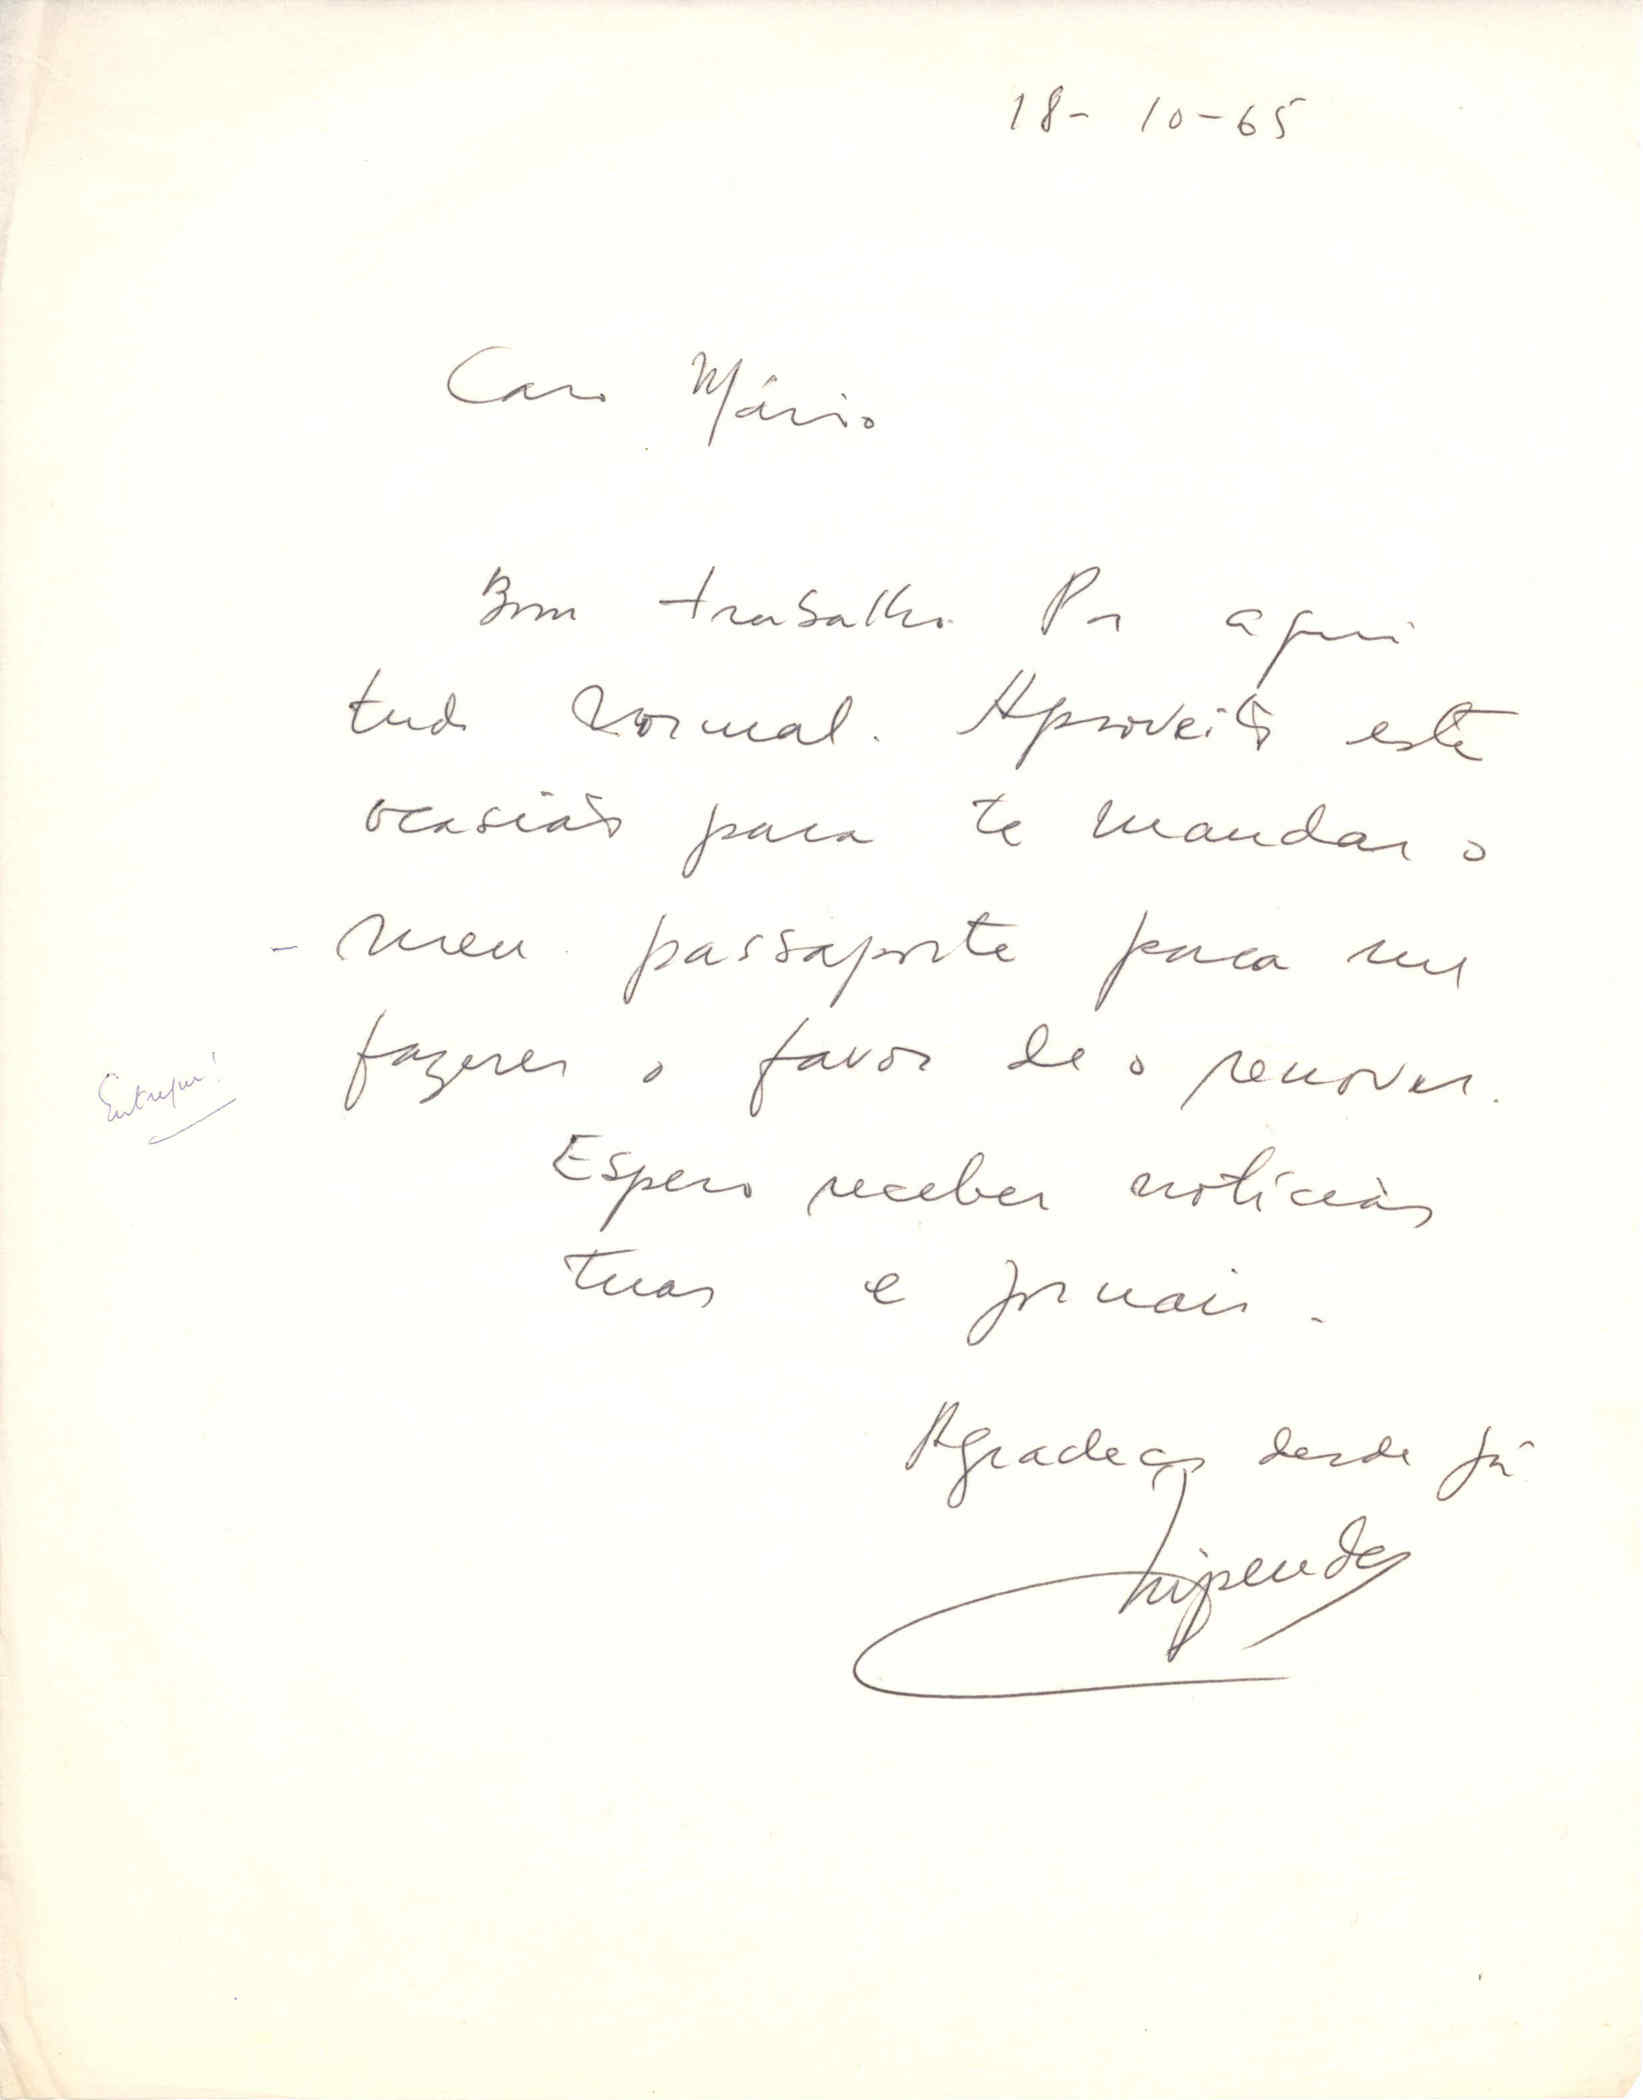 18-10-65
Caro Mário
Bom trabalho. Por aqui
tudo normal. Aproveito esta
ocasião para te mandar o
- meu passaporte para me
fazeres o favor de o renovar.
Entreguei!
Espero receber notícias
tuas e jornais.
Agradeço desde já
Chipenda